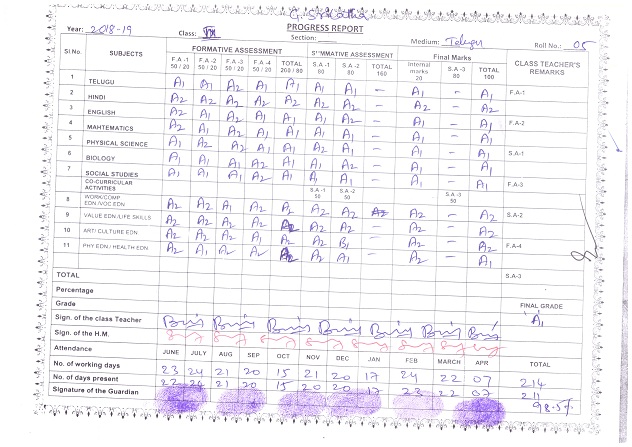 G. Srikatha
PROGRESS REPORT
Year: 2018-19 Class: Section: Medium: Telugu Roll No.: 05
Sl No. SUBJECTS FORMATIVE ASSESSMENT S MMATIVE ASSESSMENT Final Marks CLASS TEACHER'S REMARKS
F.A -1 50 / 20 F.A -2 50 / 20 F.A -3 50 / 20 F.A -4 50 / 20 TOTAL 200 / 80 S.A -1 80 S.A -2 80 TOTAL 160 Internal marks 20 S.A -3 80 TOTAL 100
1 TELUGU A1 A1 A2 A1 A1 A1 A1 - A1 - A1 F.A-1
2 HINDI A2 A2 A2 A2 A2 A2 A2 - A2 - A2
3 ENGLISH A2 A1 A2 A1 A1 A1 A1 - A1 - A1 F.A-2
4 MAHTEMATICS A2 A1 A2 A1 A1 A1 - A1 - A1
5 PHYSICAL SCIENCE A1 A2 A2 A1 A1 A1 A1 - A1 - A1 S.A-1
6 BIOLOGY A1 A1 A1 A2 A1 A1 A1 - A1 - A1
7 SOCIAL STUDIES A1 A1 A1 A2 A1 A1 - A1 - A1 F.A-3
CO-CURRICULAR ACTIVITIES S.A -1 50 S.A -2 50 S.A -3 50
8 WORK/COMP EDN /VOC EDN A2 A2 A1 A2 A2 A2 A2 A2 - A2 S.A-2
9 VALUE EDN /LIFE SKILLS A2 A2 A2 A2 A2 A2 A2 - A2
10 ART/ CULTURE EDN A2 A2 A2 A1 A2 A2 B1 - A2 - A2 F.A-4
11 PHY EDN / HEALTH EDN A2 A1 A2 A2 A2 A2 A1 - A2 - A1
TOTAL S.A-3
Percentage
Grade FINAL GRADE A1
Sign. of the class Teacher
Sign. of the H.M.
Attendance JUNE JULY AUG SEP OCT NOV DEC JAN FEB MARCH APR TOTAL
No. of working days 23 24 21 20 15 21 20 17 24 22 07 214
No. of days present 22 24 21 20 15 20 20 17 23 22 07 211
Signature of the Guardian 98.5%